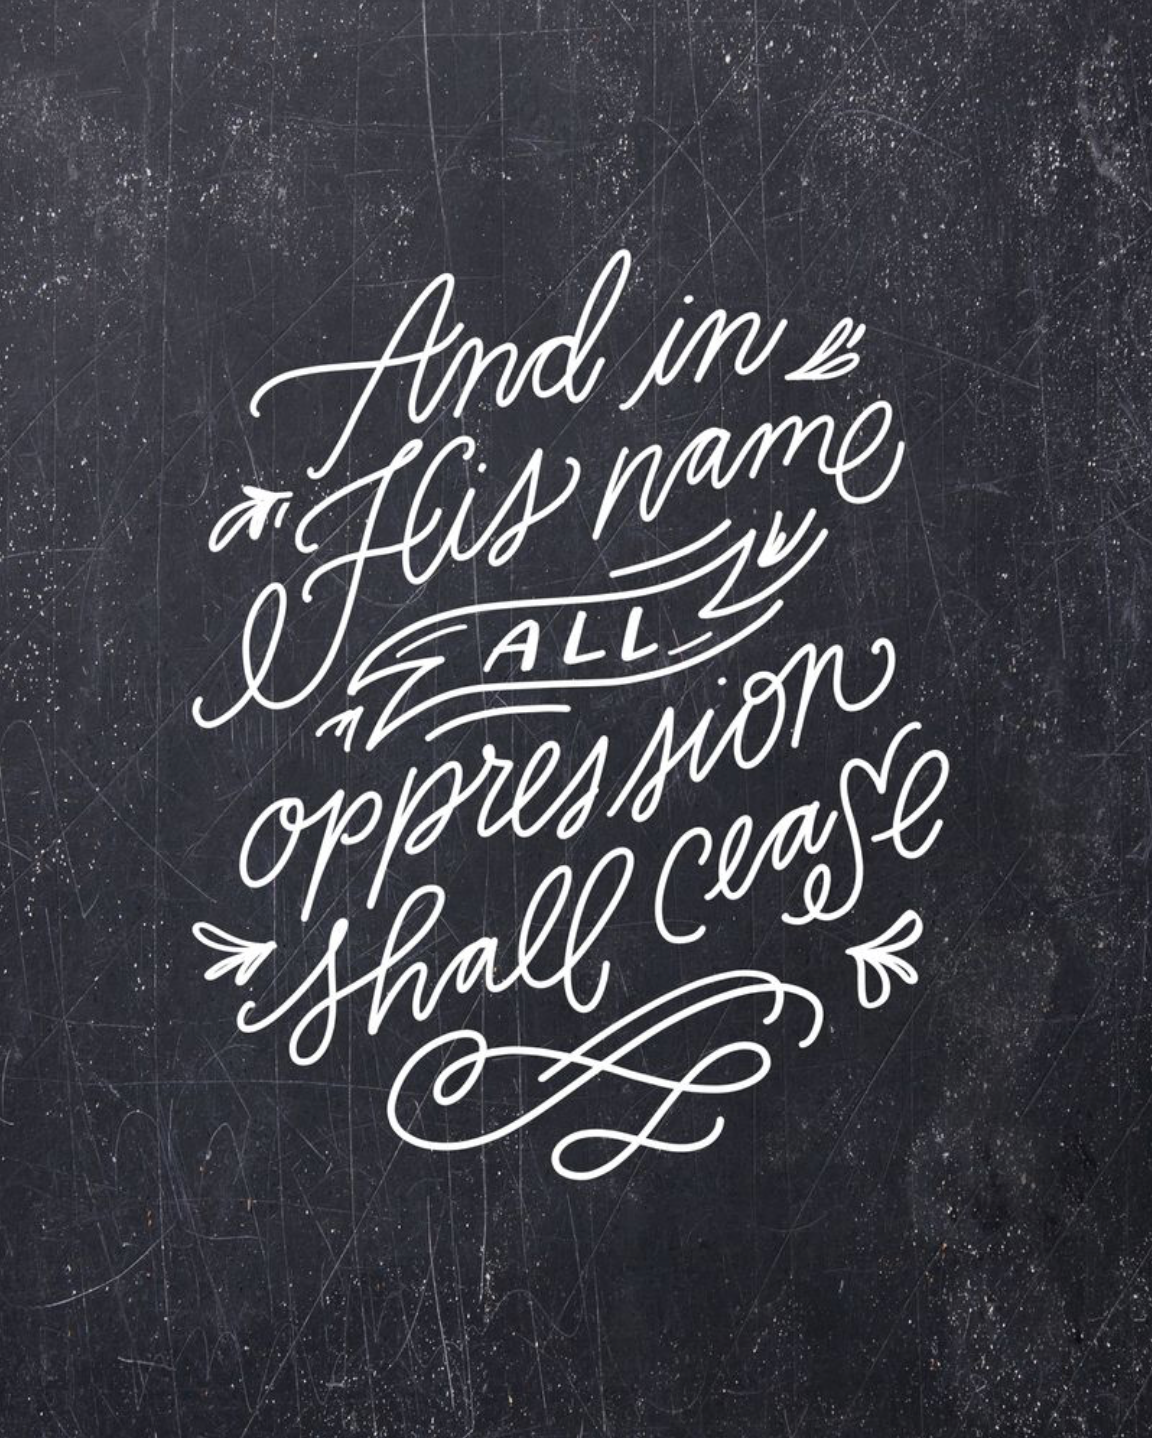 And in
His name
ALL
oppression
shall cease